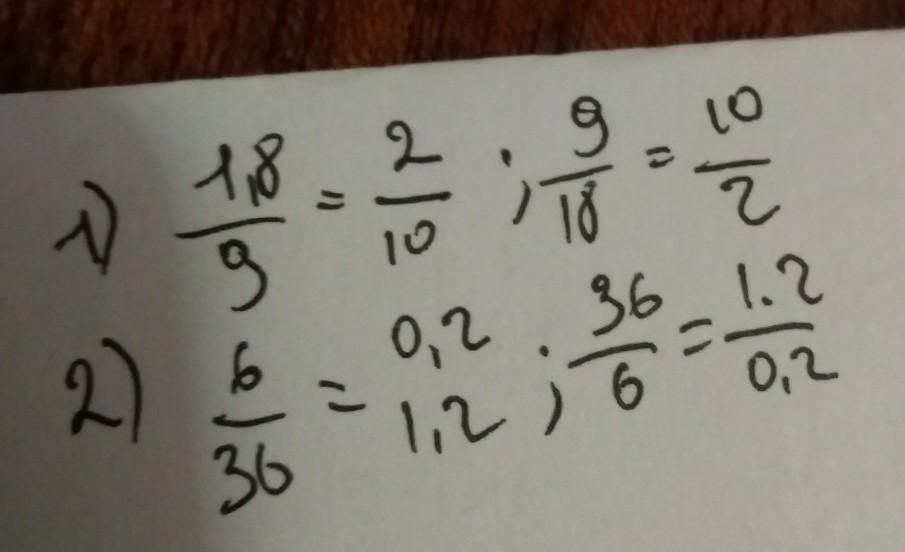 1) 1,8/9 = 2/10 ; 9/18 = 10/2
2) 6/36 = 0,2 1,2 ; 36/6 = 1.2/0,2